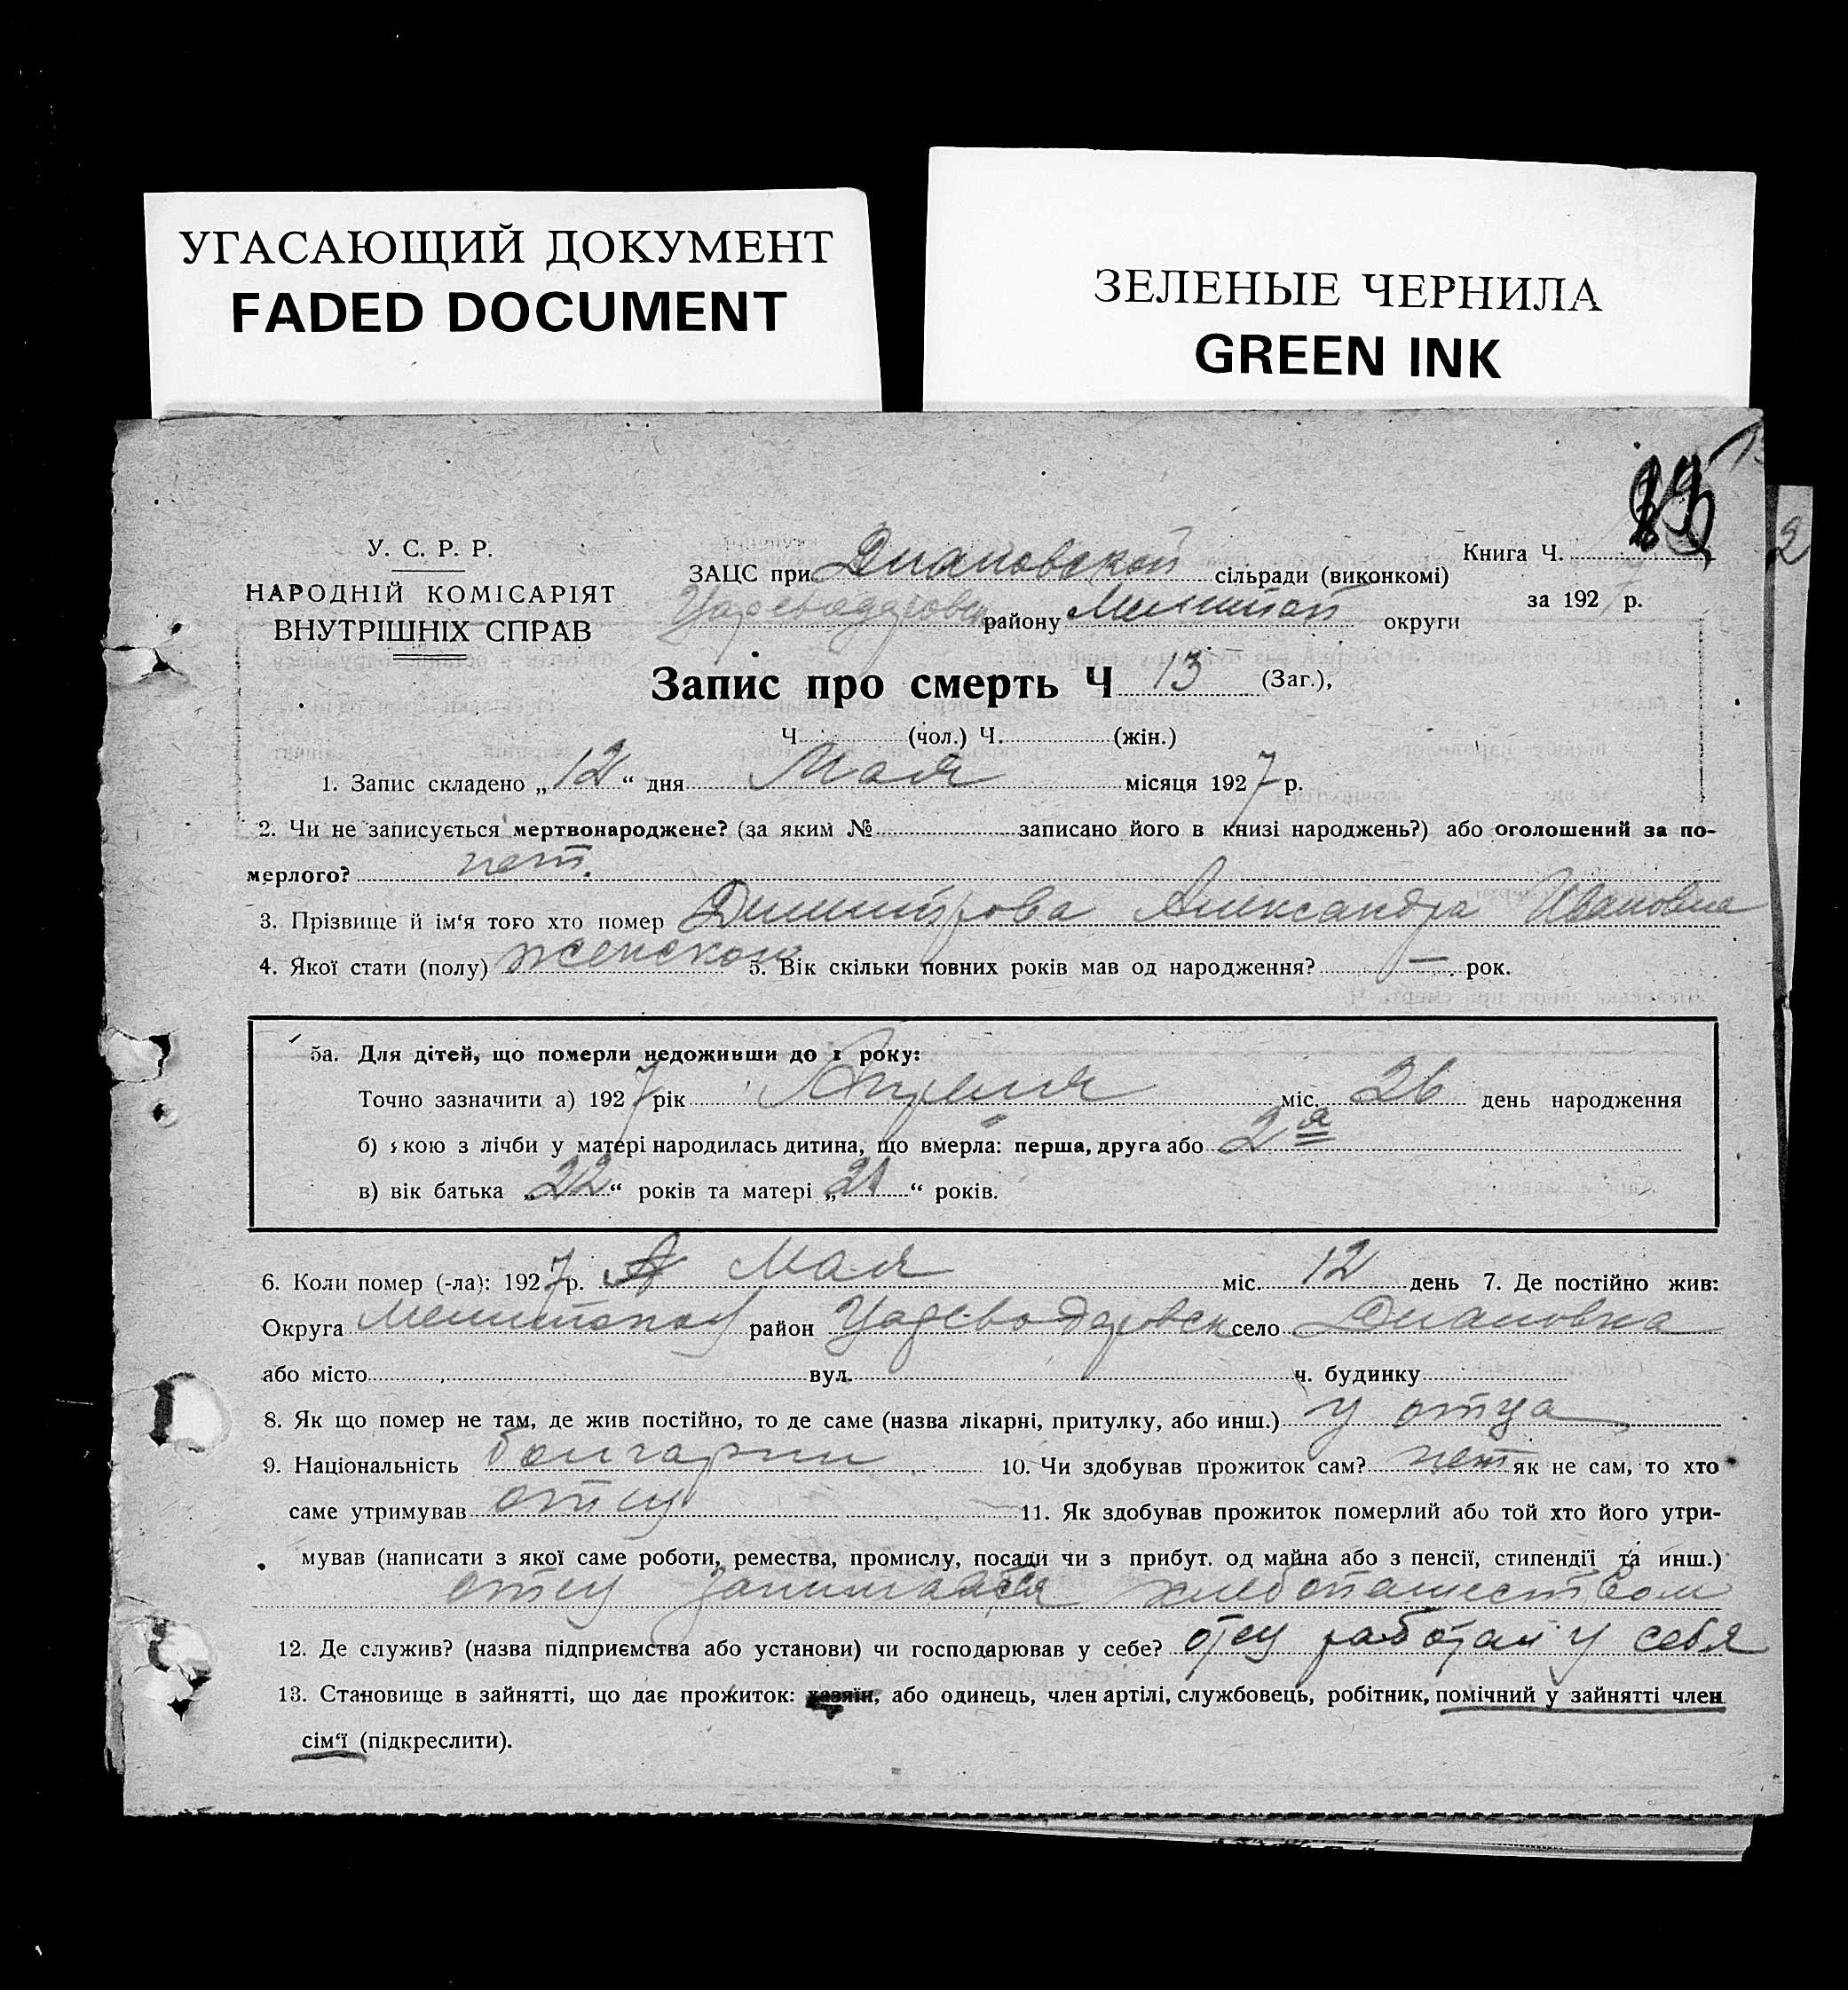 УГАСАЮЩИЙ ДОКУМЕНТ
FADED DOCUMENT
ЗЕЛЕНЫЕ ЧЕРНИЛА
GREEN INK
2
У. С. Р. Р.
НАРОДНІЙ КОМІСАРІЯТ
ВНУТРІШНІХ СПРАВ
Книга Ч.
ЗАЦС при Диановской сільради (виконкомі)
за 1927 р.
району Мелитоп округи
Запис про смерть Ч 13 (Заг.),
Ч. (чол.) Ч. (жін.)
1. Запис складено „12“ дня Мая місяця 1927 р.
2. Чи не записується мертвонароджене? (за яким № записано його в книзі народжень?) або оголошений за по-
мерлого? нет.
3. Прізвище й ім‘я того хто помер Димитрова Александра Ивановна
4. Якої стати (полу) женскою 5. Вік скільки повних років мав од народження? — рок.
5а. Для дітей, що померли недоживши до 1 року:
Точно зазначити а) 1927 рік Апреля міс. 26 день народження
б) якою з лічби у матері народилась дитина, що вмерла: перша, друга або 2я
в) вік батька „22“ років та матері „21“ років.
6. Коли помер (-ла): 1927 р. Мая міс. 12 день 7. Де постійно жив:
Округа район Цареводаровск село Диановка
або місто вул. ч. будинку
8. Як що помер не там, де жив постійно, то де саме (назва лікарні, притулку, або инш.) у отца
9. Національність болгарин 10. Чи здобував прожиток сам? нет як не сам, то хто
саме утримував отец 11. Як здобував прожиток померлий або той хто його утри-
мував (написати з якої саме роботи, ремества, промислу, посади чи з прибут. од майна або з пенсії, стипендії та инш.)
отец занимался хлебопашеством
12. Де служив? (назва підприємства або установи) чи господарював у себе? отец работал у себя
13. Становище в зайнятті, що дає прожиток: хазяїн, або одинець, член артілі, службовець, робітник, помічний у зайнятті член
сім‘ї (підкреслити).